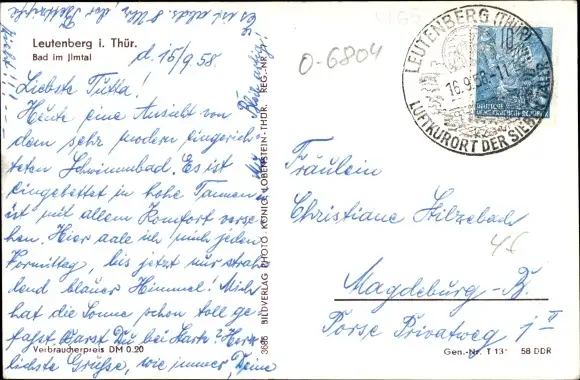 Leutenberg i. Thür.
Bad im Jlmtal
d. 15/9.58.
Liebste Tutta!
Heute eine Ansicht von
dem sehr modern eingerich-
teten Schwimmbad. Es ist
eingebettet in hohe Tannen
ist mit allem Komfort verse-
hen. Hier aale ich mich jeden
Vormittag, bis jetzt nur strah-
lend blauer Himmel! Mich
hat die Sonne schon toll ge-
fasst. Warst Du bei Harts? Herz-
lichste Grüße, wie immer, Deine
Verbraucherpreis DM 0.20
3685 BILDVERLAG PHOTO KÖNIG LOBENSTEIN-THÜR. REG.-NR.
0-6804
LEUTENBERG (THÜR)
16.9.58.-11
LUFTKURORT DER SIEBEN TÄLER
10
DEUTSCHE
DEMOKRATISCHE REPUBLIK
Fräulein
Christiane
Magdeburg-B.
Porse Privatweg 1 II
Gen.-Nr. T 13 58 DDR